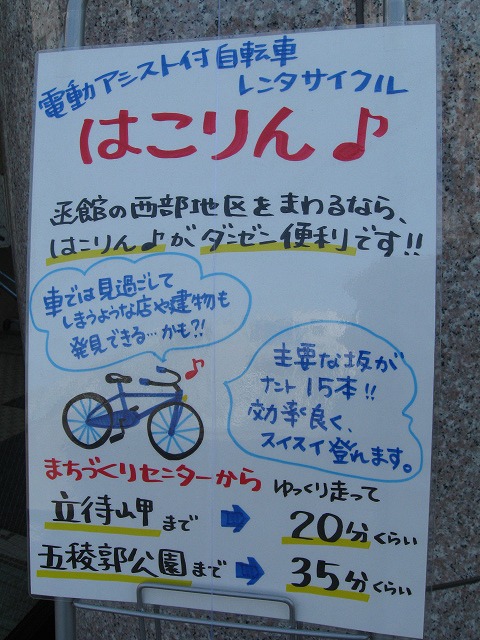 電動アシスト付自転車
レンタサイクル
はこりん♪
函館の西部地区をまわるなら、
はこりん♪がダンゼン便利です!!
車では見過ごして
しまうような店や建物も
発見できる…かも?!
♪
主要な坂が
ナント15本!!
効率良く、
スイスイ登れます。
まちづくりセンターから ゆっくり走って
立待岬まで ➡ 20分くらい
五稜郭公園まで ➡ 35分くらい